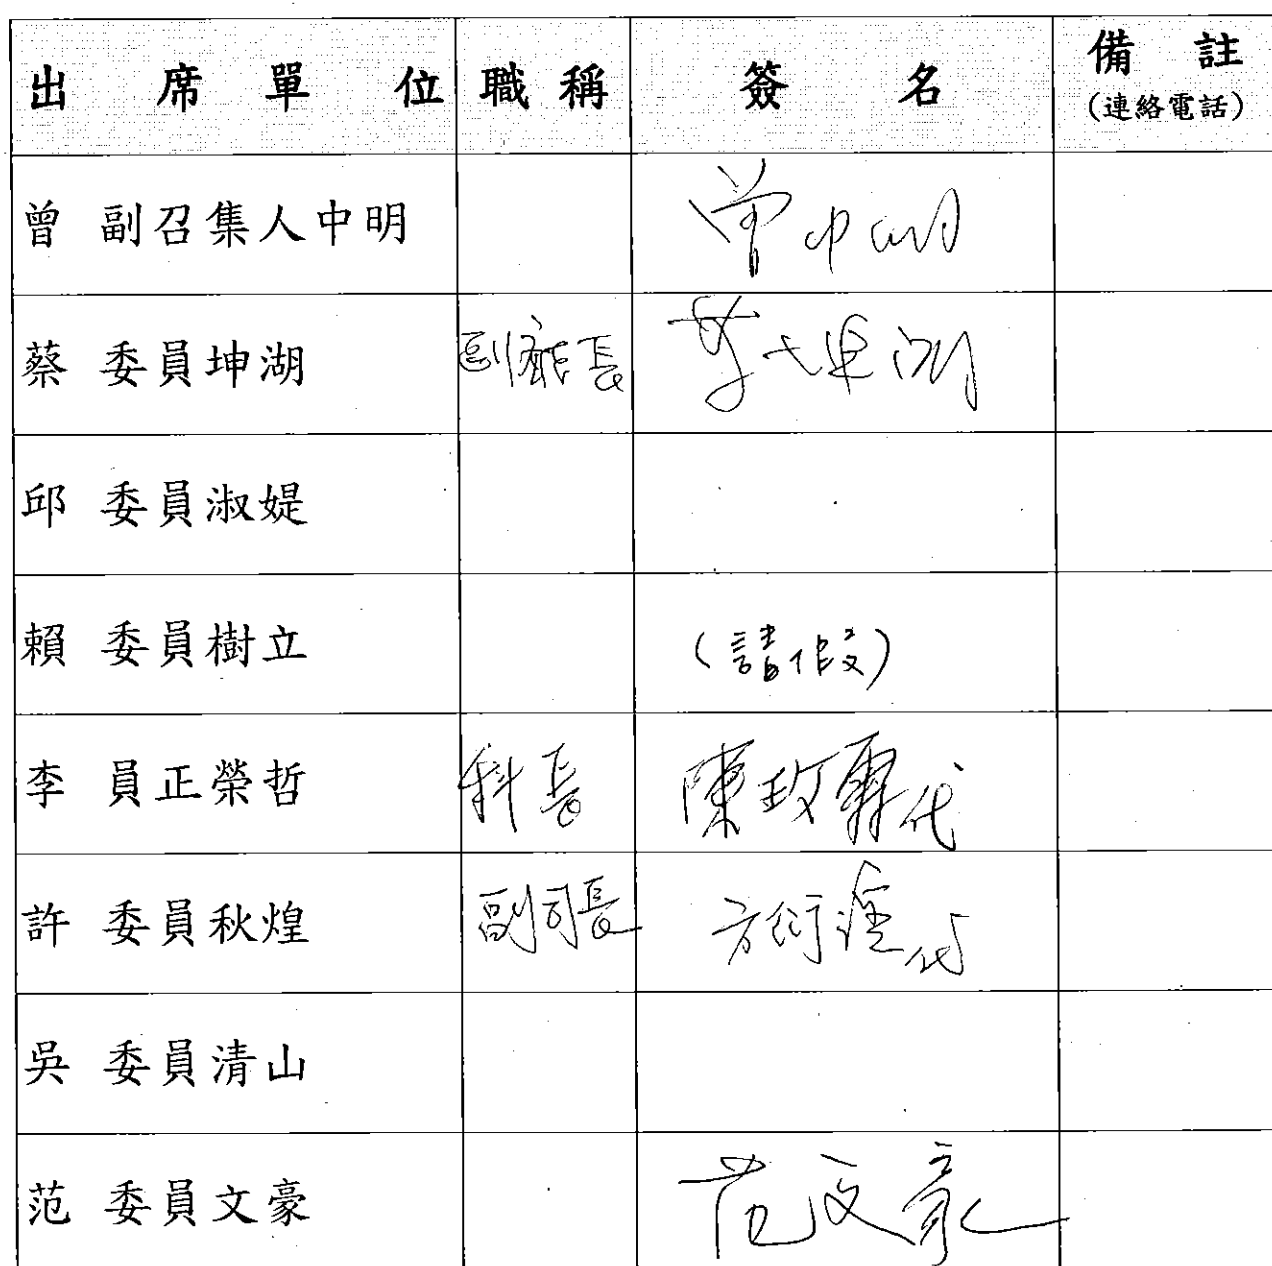 出席單位 職稱 簽名 備註
(連絡電話)
曾 副召集人中明 曾中明
蔡 委員坤湖 副處長 蔡坤湖
邱 委員淑媞
賴 委員樹立 (請假)
李 員正榮哲 科長 陳玫霖代
許 委員秋煌 副司長 代
吳 委員清山
范 委員文豪 范文豪